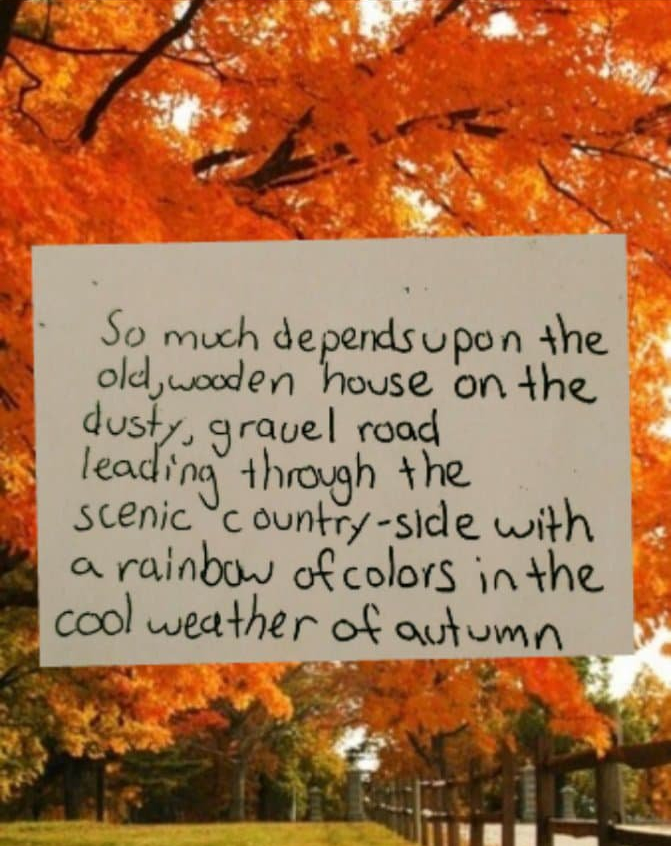 So much depends upon the
old, wooden house on the
dusty, gravel road
leading through the
scenic country-side with
a rainbow of colors in the
cool weather of autumn